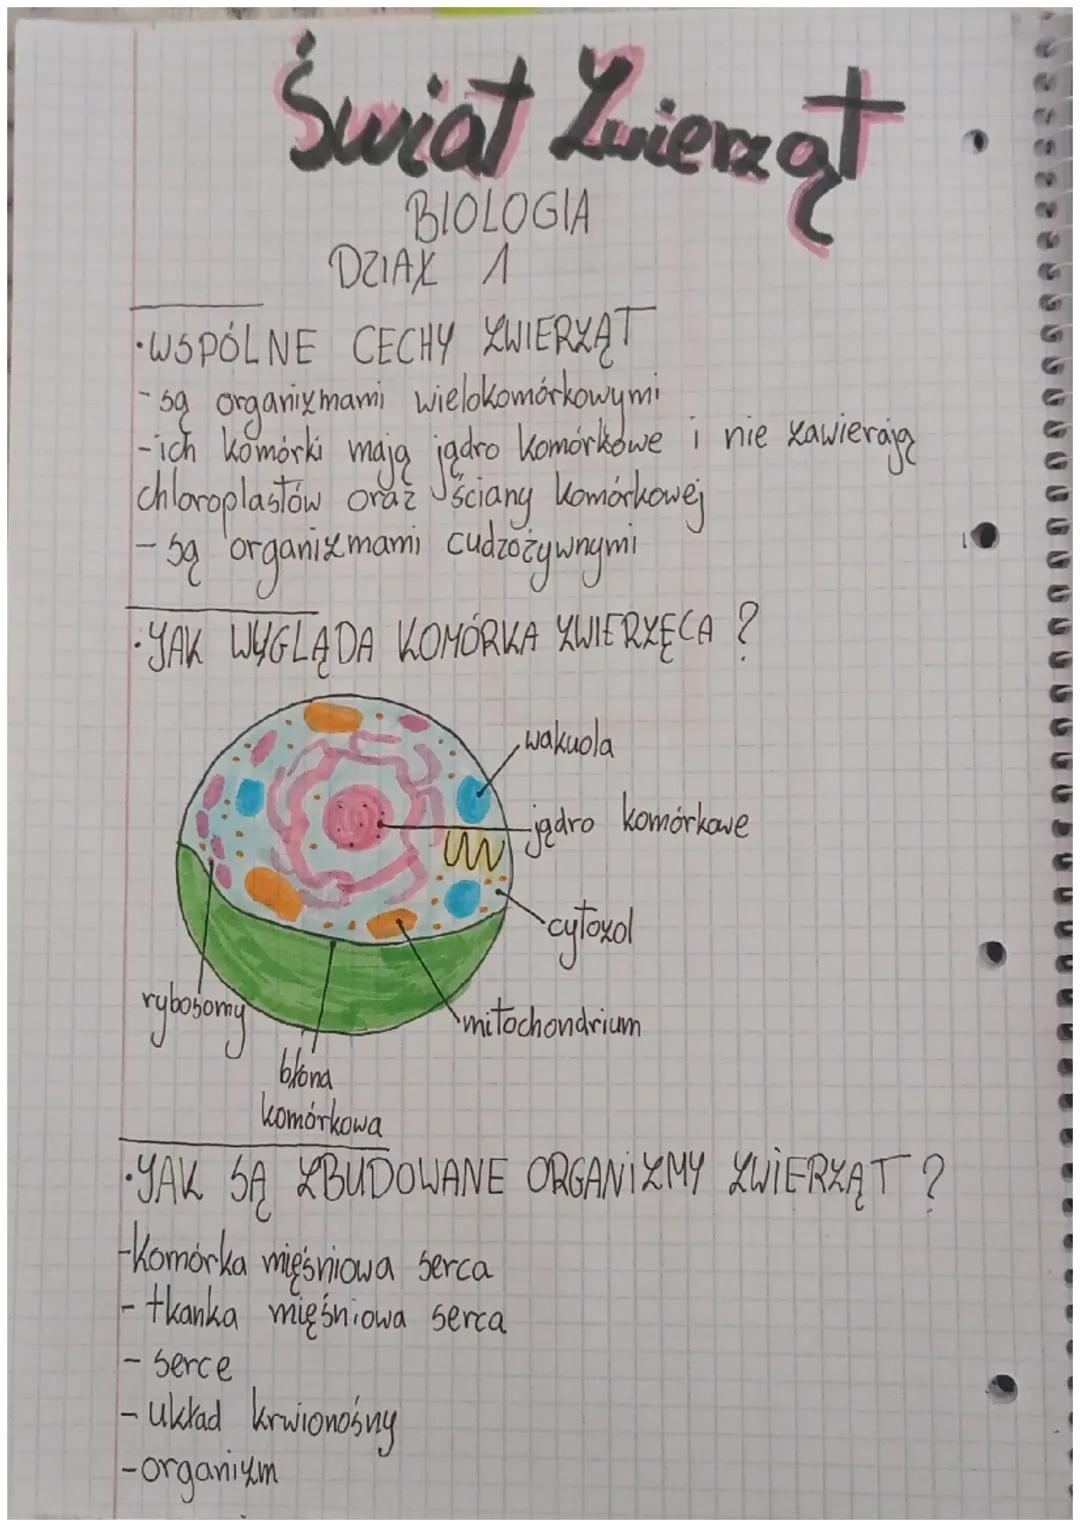 Świat Zwierząt
BIOLOGIA
DZIAŁ 1
•WSPÓLNE CECHY ZWIERZĄT
- są organizmami wielokomórkowymi
- ich komórki mają jądro komórkowe i nie zawierają
chloroplastów oraz ściany komórkowej
- są organizmami cudzożywnymi
•JAK WYGLĄDA KOMÓRKA ZWIERZĘCA ?
wakuola
jądro komórkowe
cytozol
rybosomy
mitochondrium
błona
komórkowa
•JAK SĄ ZBUDOWANE ORGANIZMY ZWIERZĄT ?
-Komórka mięśniowa serca
- tkanka mięśniowa serca
- serce
- układ krwionośny
-organizm